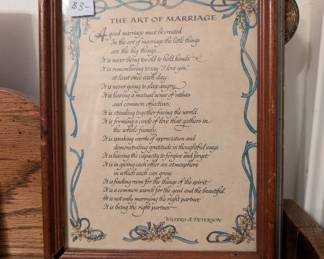 $3-
THE ART OF MARRIAGE
A good marriage must be created.
In the art of marriage the little things
are the big things.
It is never being too old to hold hands
It is remembering to say "I love you,"
at least once each day.
It is never going to sleep angry.
It is having a mutual sense of values
and common objectives.
It is standing together facing the world.
It is forming a circle of love that gathers in
the whole family.
It is speaking words of appreciation and
demonstrating gratitude in thoughtful ways.
It is having the capacity to forgive and forget.
It is in giving each other an atmosphere
in which each can grow.
It is finding room for the things of the spirit.
It is a common search for the good and the beautiful.
It is not only marrying the right partner;
It is being the right partner.
WILFERD A. PETERSON